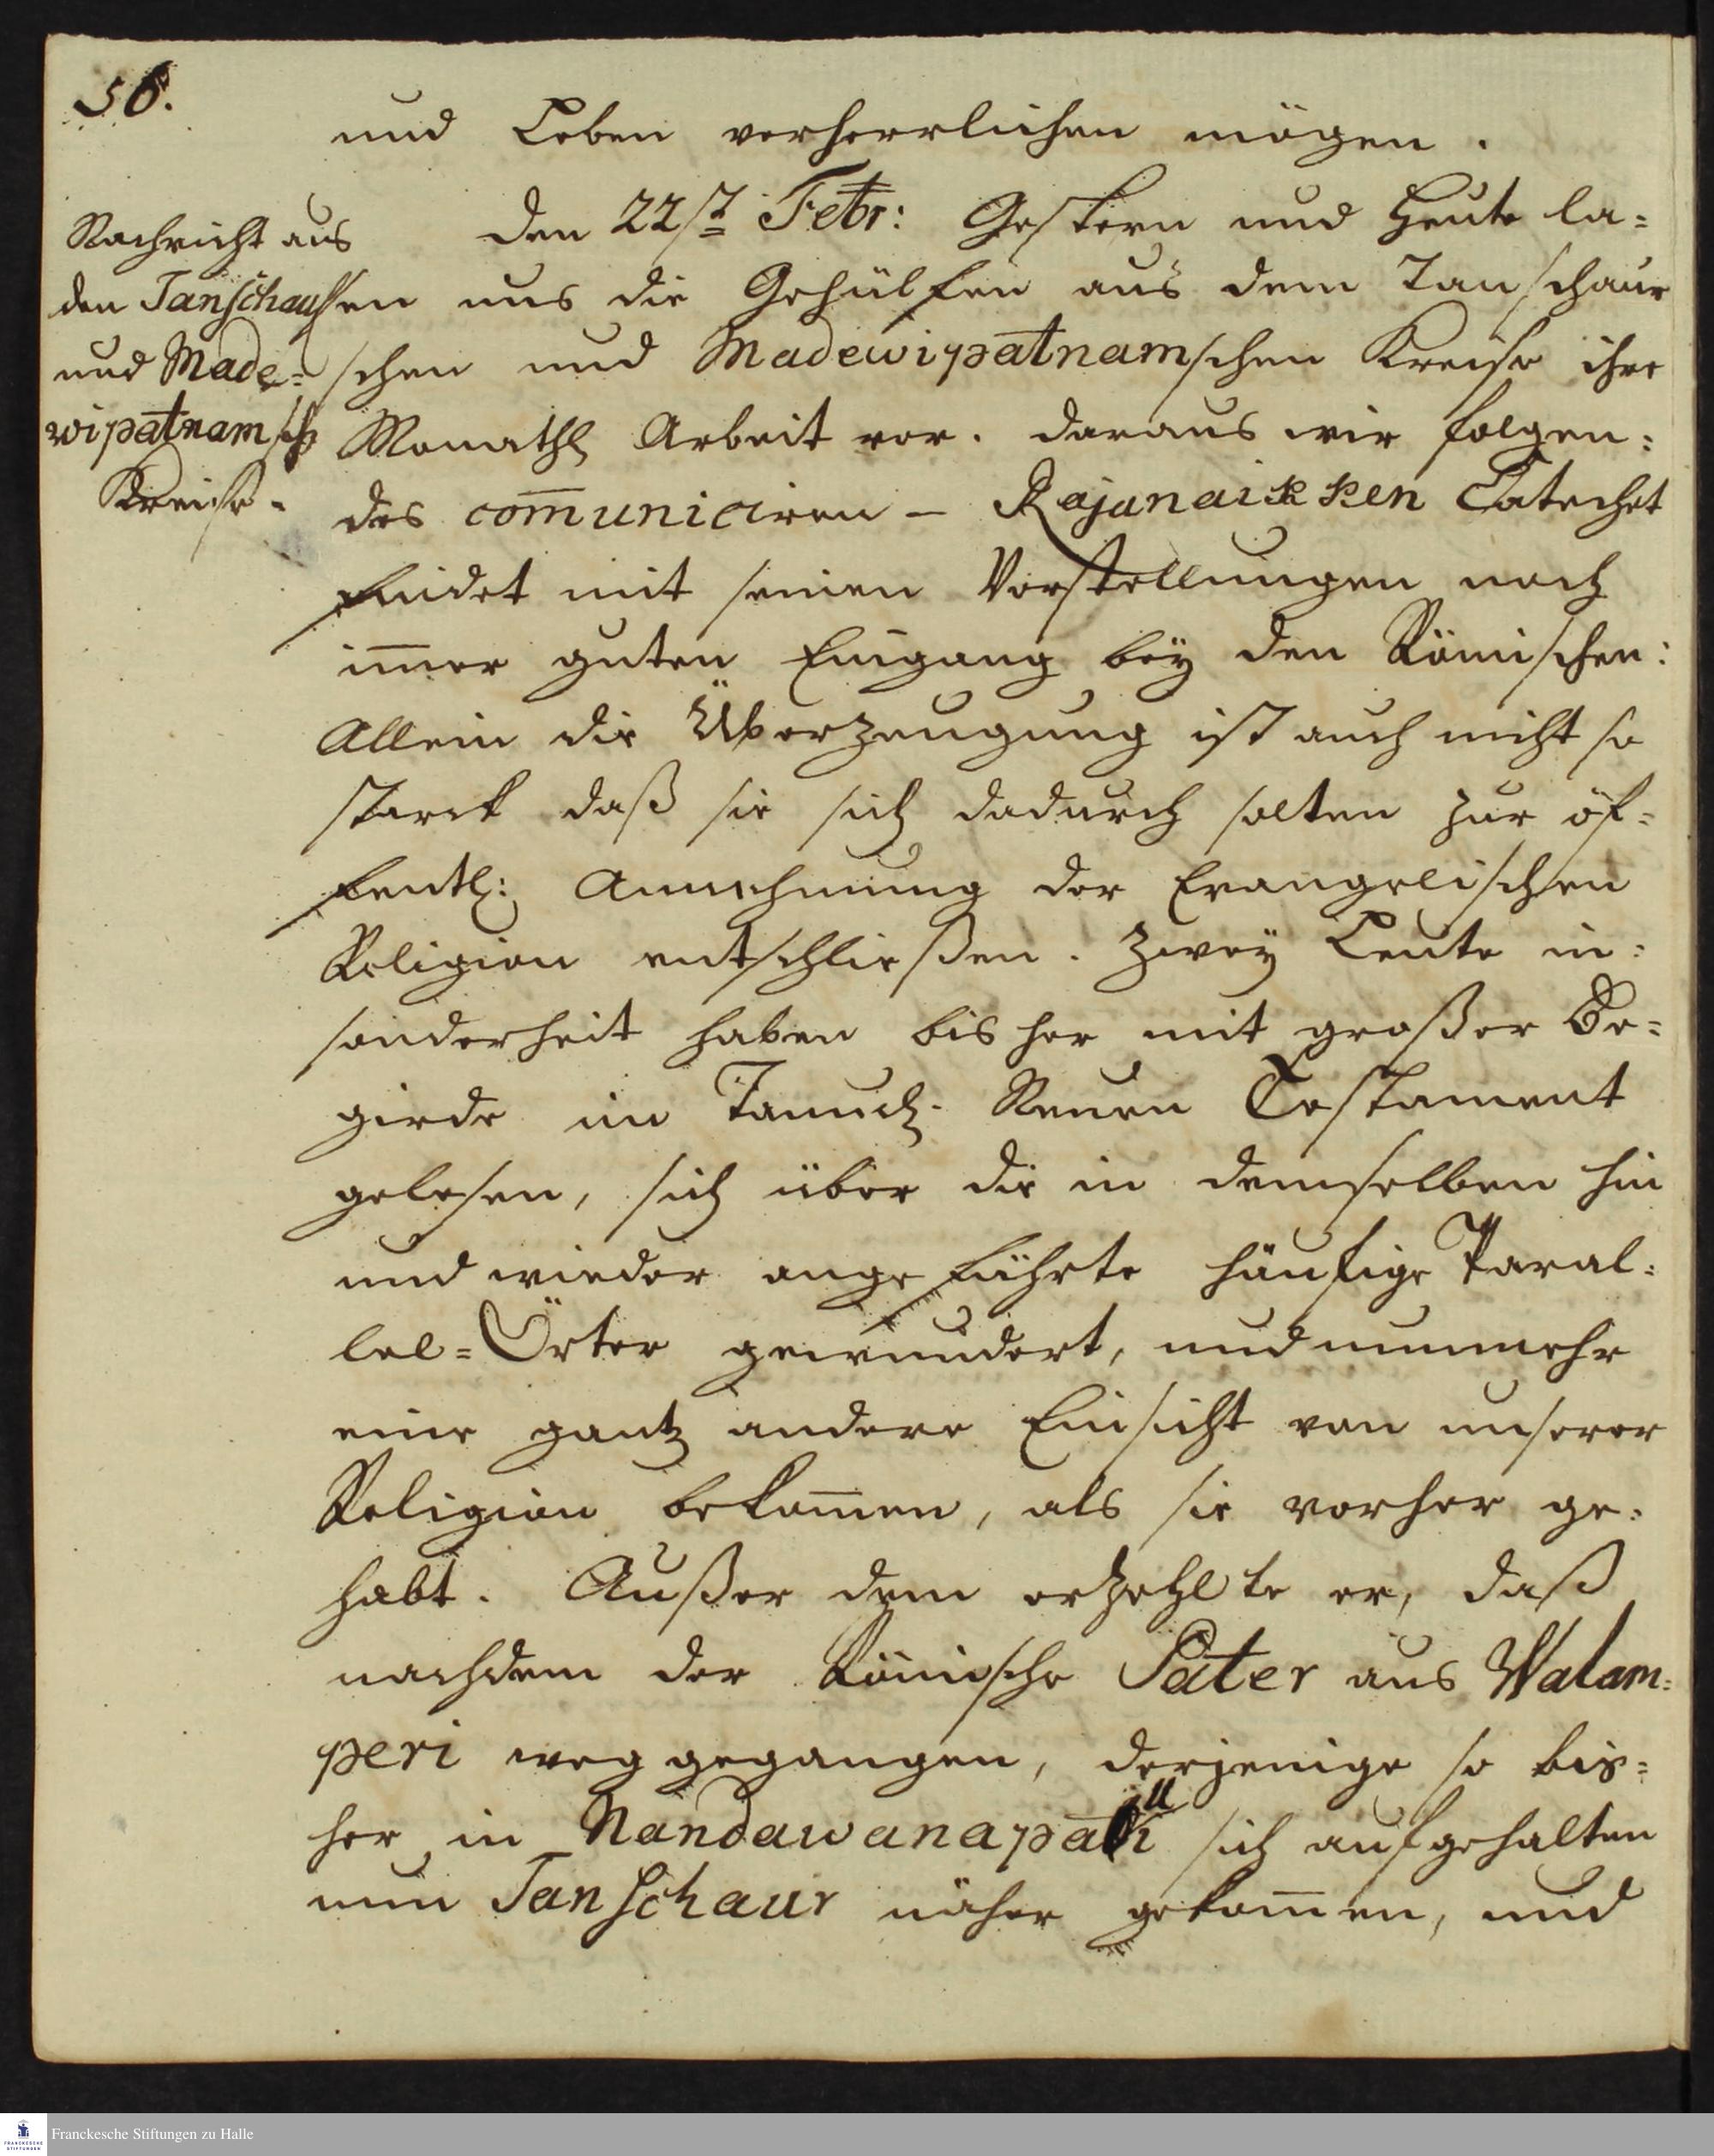 56.
und Leben verherrlichen mögen.
Nachricht aus
den Tanschaur
und Made-
wipatnamsch
Kreise.
den 22st Febr: Gestern und Heute la-
sen uns die Gehülfen aus dem Tanschaur
schen und Madewipatnamschen Kreise ihre
Monathl Arbeit vor. daraus wir folgen-
des com̄uniciren – Rajanaikken Catechet
findet mit seinen Vorstellungen noch
im̄er guten Eingang bey den Römischen:
Allein die Überzeugung ist auch nicht so
starck daß sie sich dadurch solten zur öf-
fentl: Annehmung der Evangelischen
Religion entschließen. Zwey Leute in-
sonderheit haben bis her mit großer Be-
girde im Tamul. Neuen Testament
gelesen, sich über die in demselben hin
und wieder angeführte häufige Paral-
lel-Örter gewundert, und nunmehr
eine gantz andere Einsicht von unserer
Religion bekom̄en, als sie vorher ge-
habt. Außer dem erzehlte er, daß
nachdem der Römische Pater aus Walam-
peri weg gegangen, derjenige so bis-
her in Nandawanapa sich aufgehalten
nun Tanschaur näher gekom̄en, und
Franckesche Stiftungen zu Halle